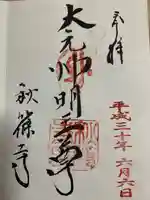 奉拝
平成二十年六月六日
大元帥明王尊
秋篠寺